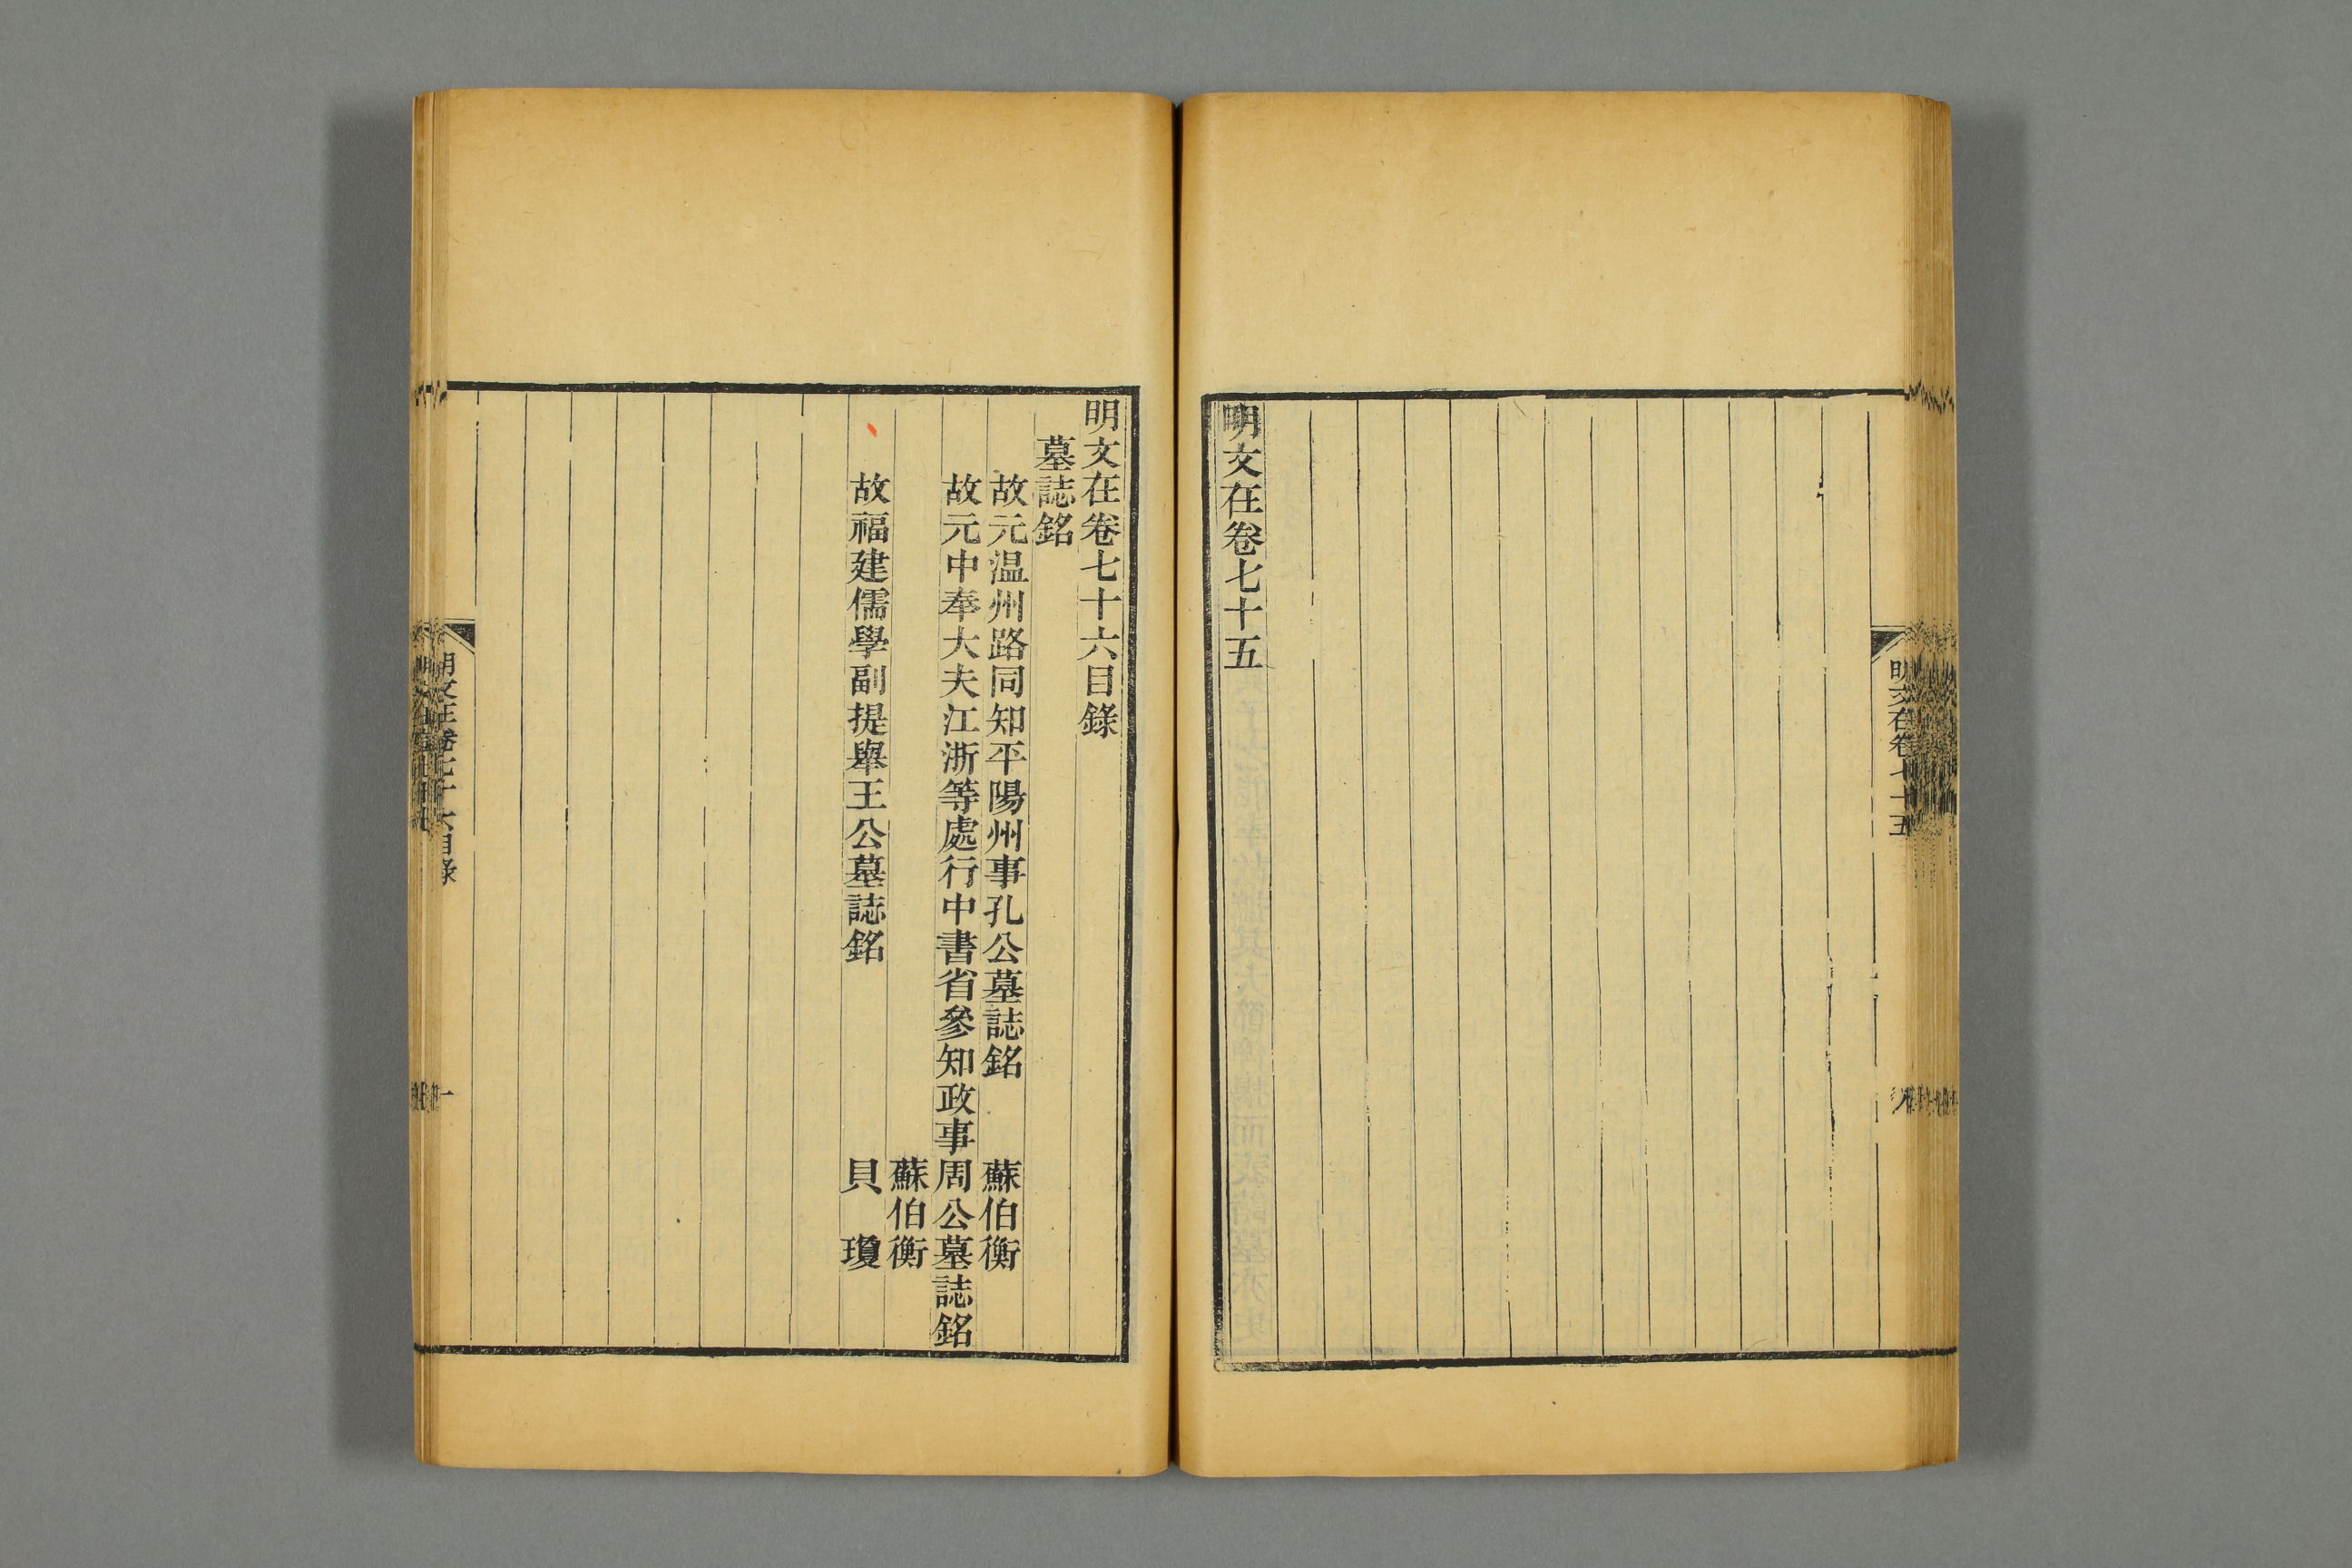 明文在卷七十五
明文在卷七十五
明文在卷七十六目錄
墓誌銘
故元温州路同知平陽州事孔公墓誌銘　蘇伯衡
故元中奉大夫江浙等處行中書省參知政事周公墓誌銘
蘇伯衡
故福建儒學副提舉王公墓誌銘　貝　瓊
明文在卷七十六目錄
一